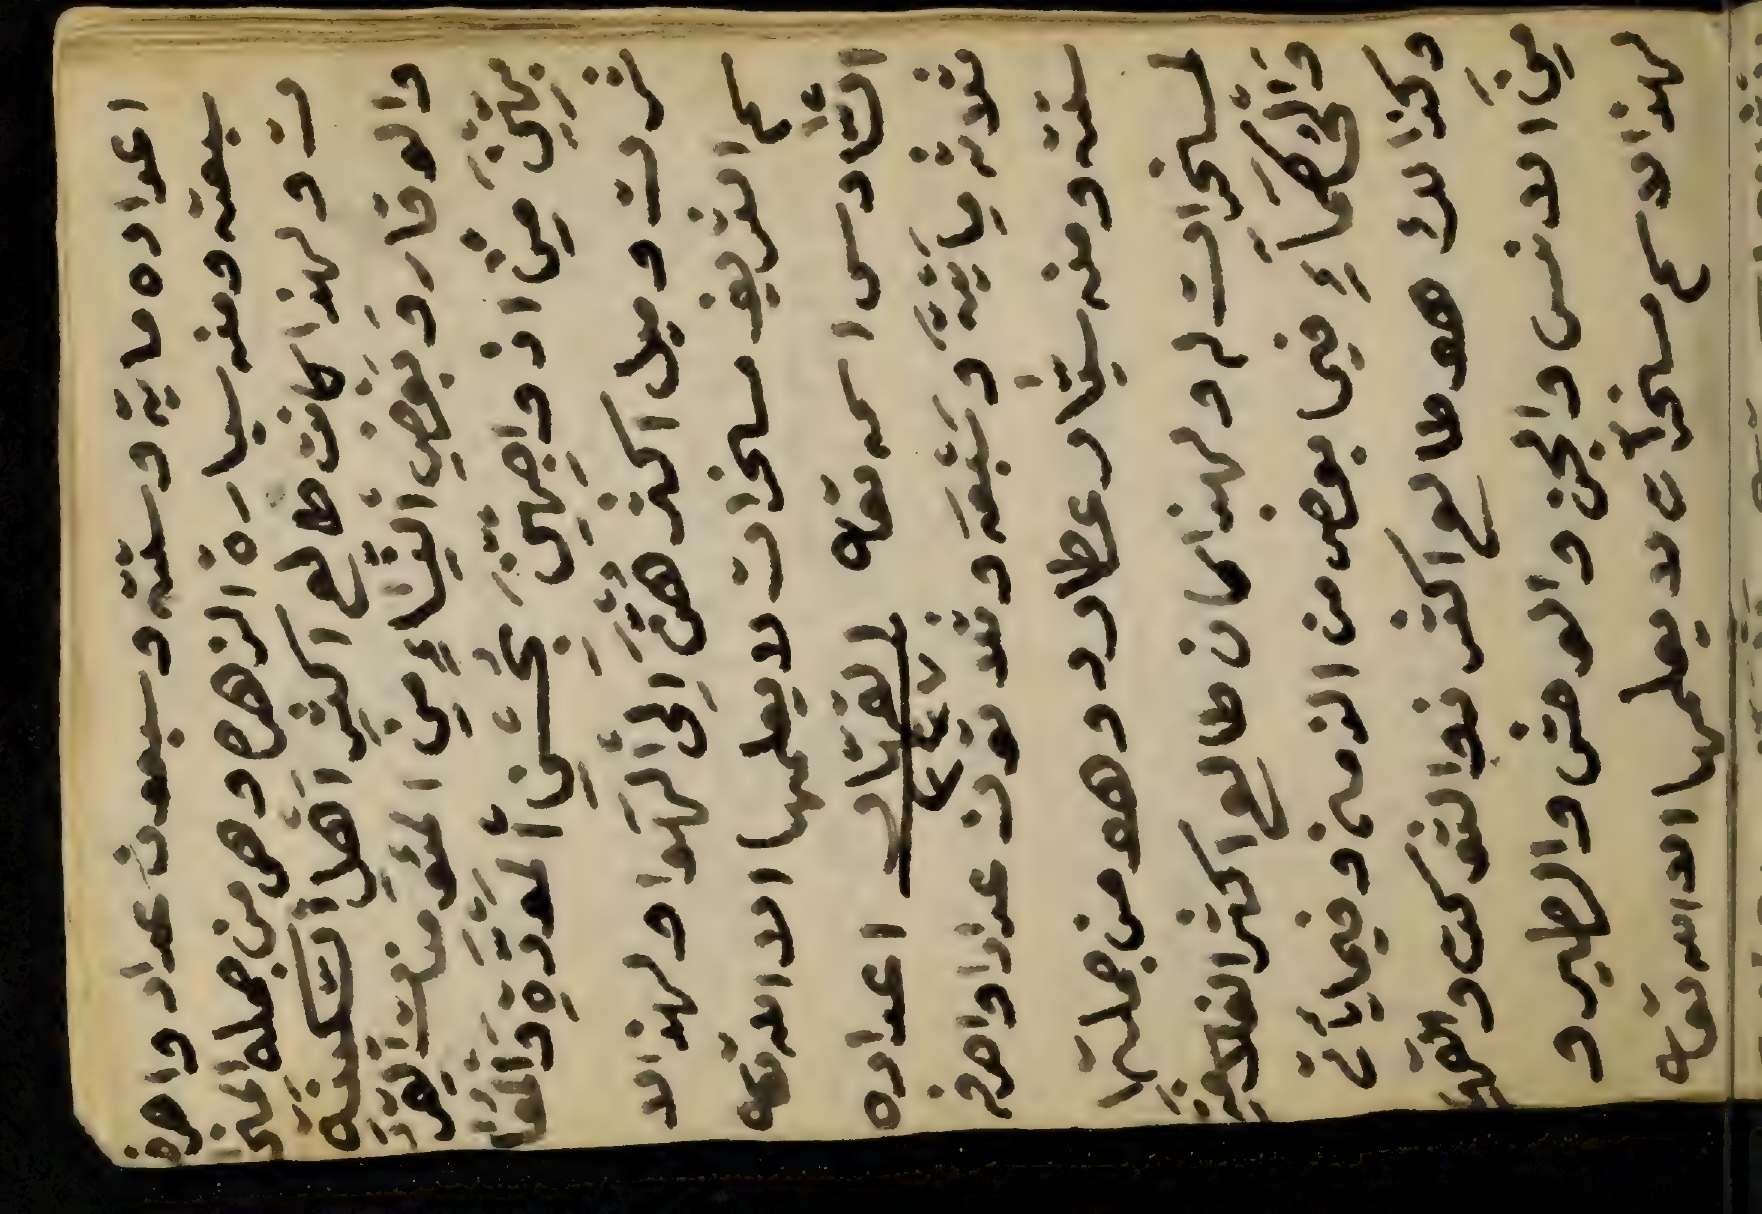 اعداده ماية وستة وسبعون عدد واحذ
جمعته ومنه سيارة الزهرة وهي من جملة
ت ولهذا كانت طالع اكثر اهل السكينة
والوقار وبعض النساء من المؤمنات
من ازواجهن بحسن المودة
وميل اكثرهن الى الهواء ولهذا الا
سم الشريف سخرات لا يعلمها الا الله تعه
السادس اسمه تعه القهار اعداده
ثلاثماية وسبعة وثلاثون عدد واحذ
عته ومنه سيار عطارد وهو من جملة
لسخرات له ولهذا كان طالع اكثر
والحكماء في بعض من الازمنة وفيما يأتي
وكذلك هو طالع اكثر ذوا الشوكت والقهر
من الانس والجن والوحش والطير و
لهذا الاسم لا يعلمها الا الله تعه